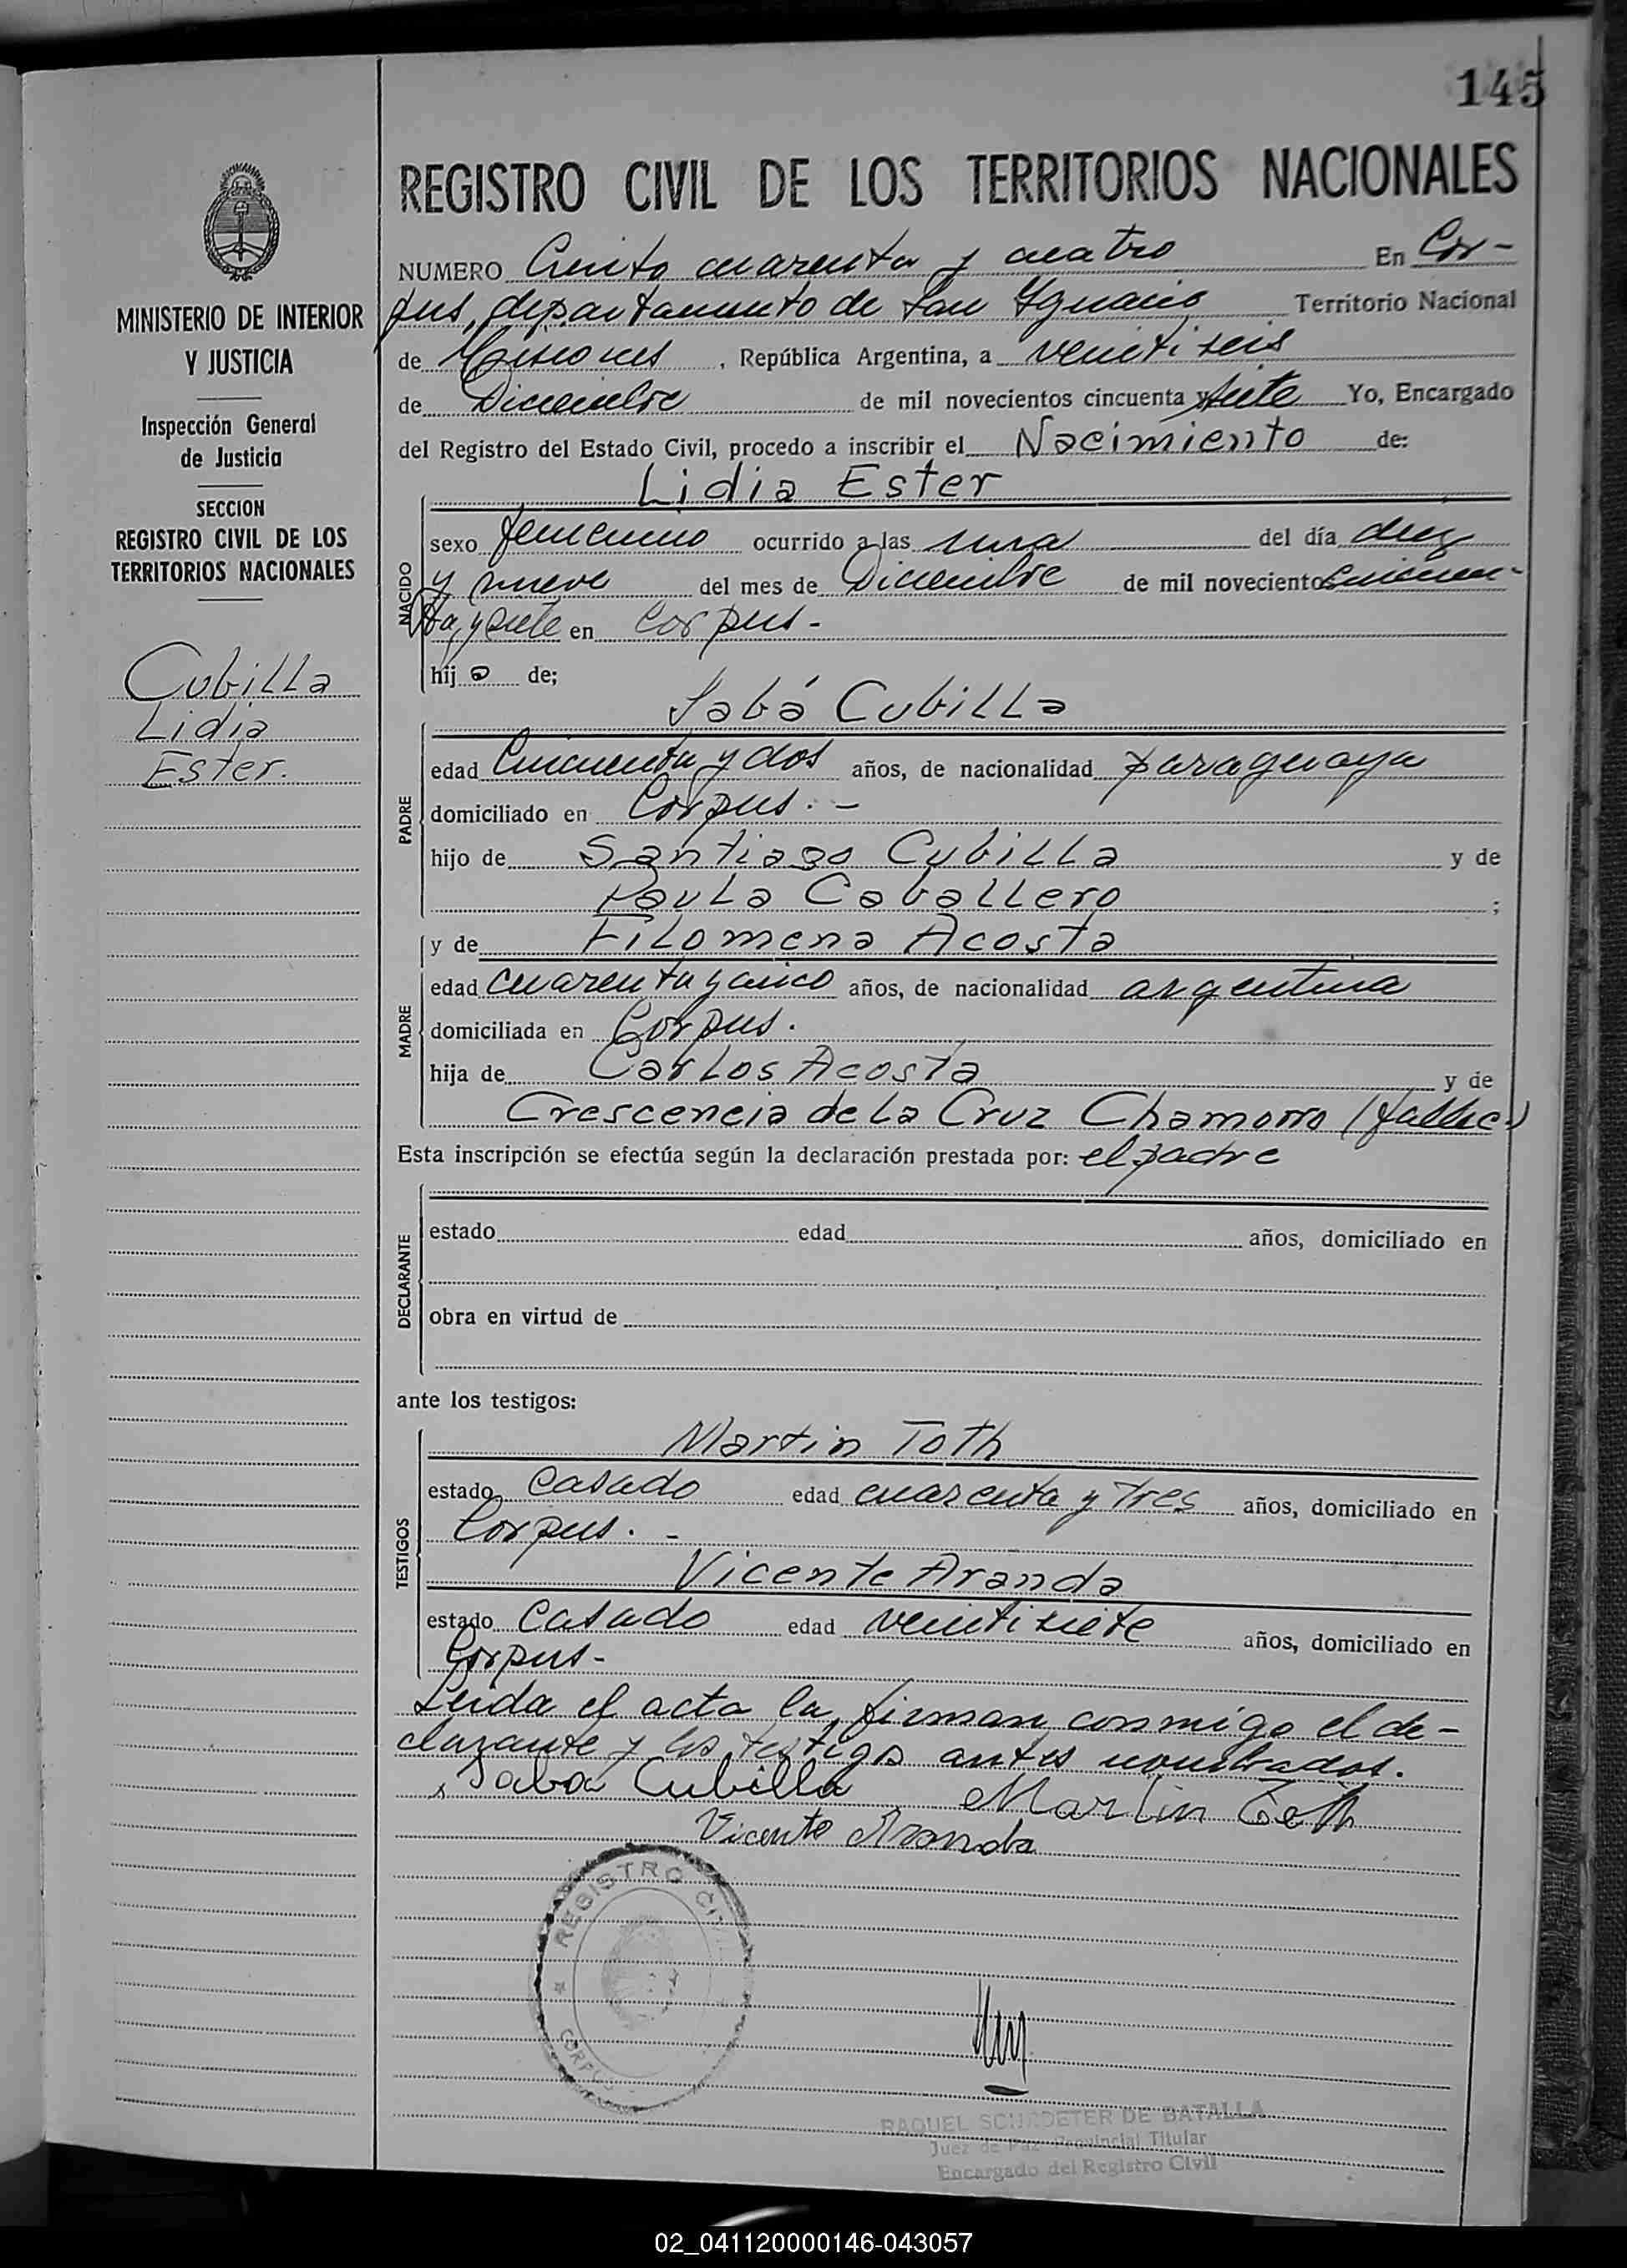 145
REGISTRO CIVIL DE LOS TERRITORIOS NACIONALES
MINISTERIO DE INTERIOR
Y JUSTICIA
Inspección General
de Justicia
SECCION
REGISTRO CIVIL DE LOS
TERRITORIOS NACIONALES
Cubilla
Lidia
Ester.
NUMERO Ciento cuarenta y cuatro En Cor-
pus, departamento de San Ygnacio Territorio Nacional
de Misiones, República Argentina, a veintiseis
de Diciembre de mil novecientos cincuenta y siete Yo, Encargado
del Registro del Estado Civil, procedo a inscribir el Nacimiento de:
Lidia Ester
NACIDO
sexo femenino ocurrido a las una del día diez
y nueve del mes de Diciembre de mil novecientos cincuen-
ta y siete en Corpus.-
hija de;
Sabá Cubilla
PADRE
edad Cincuenta y dos años, de nacionalidad paraguaya
domiciliado en Corpus.-
hijo de Santiago Cubilla y de
Paula Caballero;
y de Filomena Acosta
MADRE
edad cuarenta y cinco años, de nacionalidad argentina
domiciliada en Corpus.
hija de Carlos Acosta y de
Crescencia de la Cruz Chamorro (fallec.)
Esta inscripción se efectúa según la declaración prestada por: el padre
DECLARANTE
estado edad años, domiciliado en
obra en virtud de
ante los testigos:
TESTIGOS
Martin Toth
estado Casado edad cuarenta y tres años, domiciliado en
Corpus.-
Vicente Aranda
estado Casado edad veintisiete años, domiciliado en
Corpus-
Leida el acta la firman conmigo el de-
clarante y los testigos antes nombrados.
Saba Cubilla Martin Toth
Vicente Aranda
REGISTRO CIVIL
CORPUS
RAQUEL SCHROETER DE BATALLA
Juez de Paz Provincial Titular
Encargado del Registro Civil
02_041120000146-043057